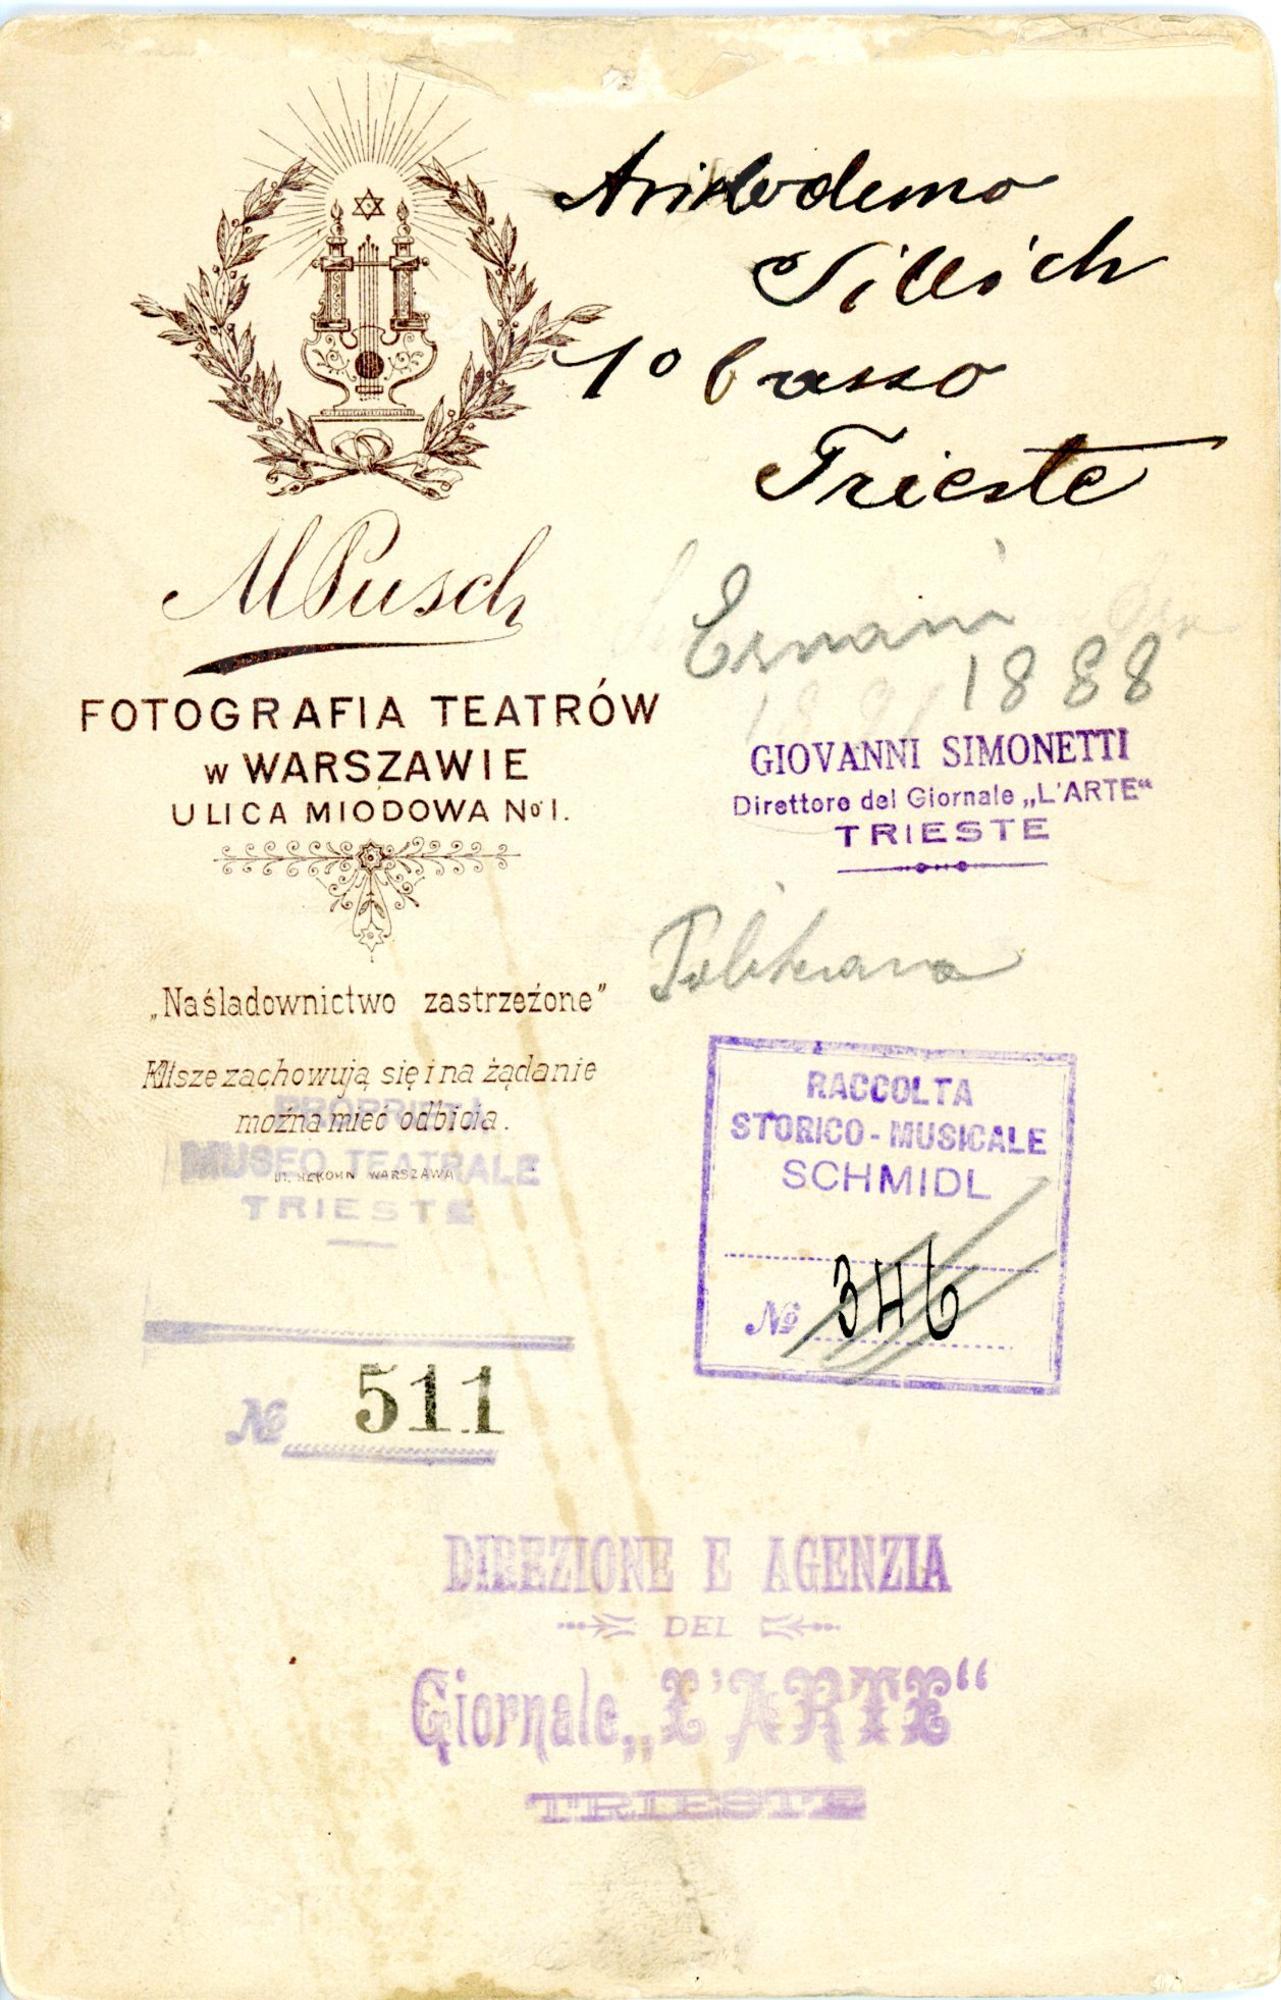 Aristodemo
Sillich
1º basso
Trieste
MPusch
FOTOGRAFIA TEATRÓW
w WARSZAWIE
ULICA MIODOWA No 1.
Ernani
1888
GIOVANNI SIMONETTI
Direttore del Giornale „L'ARTE“
TRIESTE
„Naśladownictwo zastrzeżone”
Klisze zachowują się i na żądanie
można mieć odbicia.
Politeama
PROPRIETÀ
MUSEO TEATRALE
TRIESTE
WARSZAWA
RACCOLTA
STORICO-MUSICALE
SCHMIDL
No 346
No 511
DIREZIONE E AGENZIA
DEL
Giornale „L'ARTE“
TRIESTE